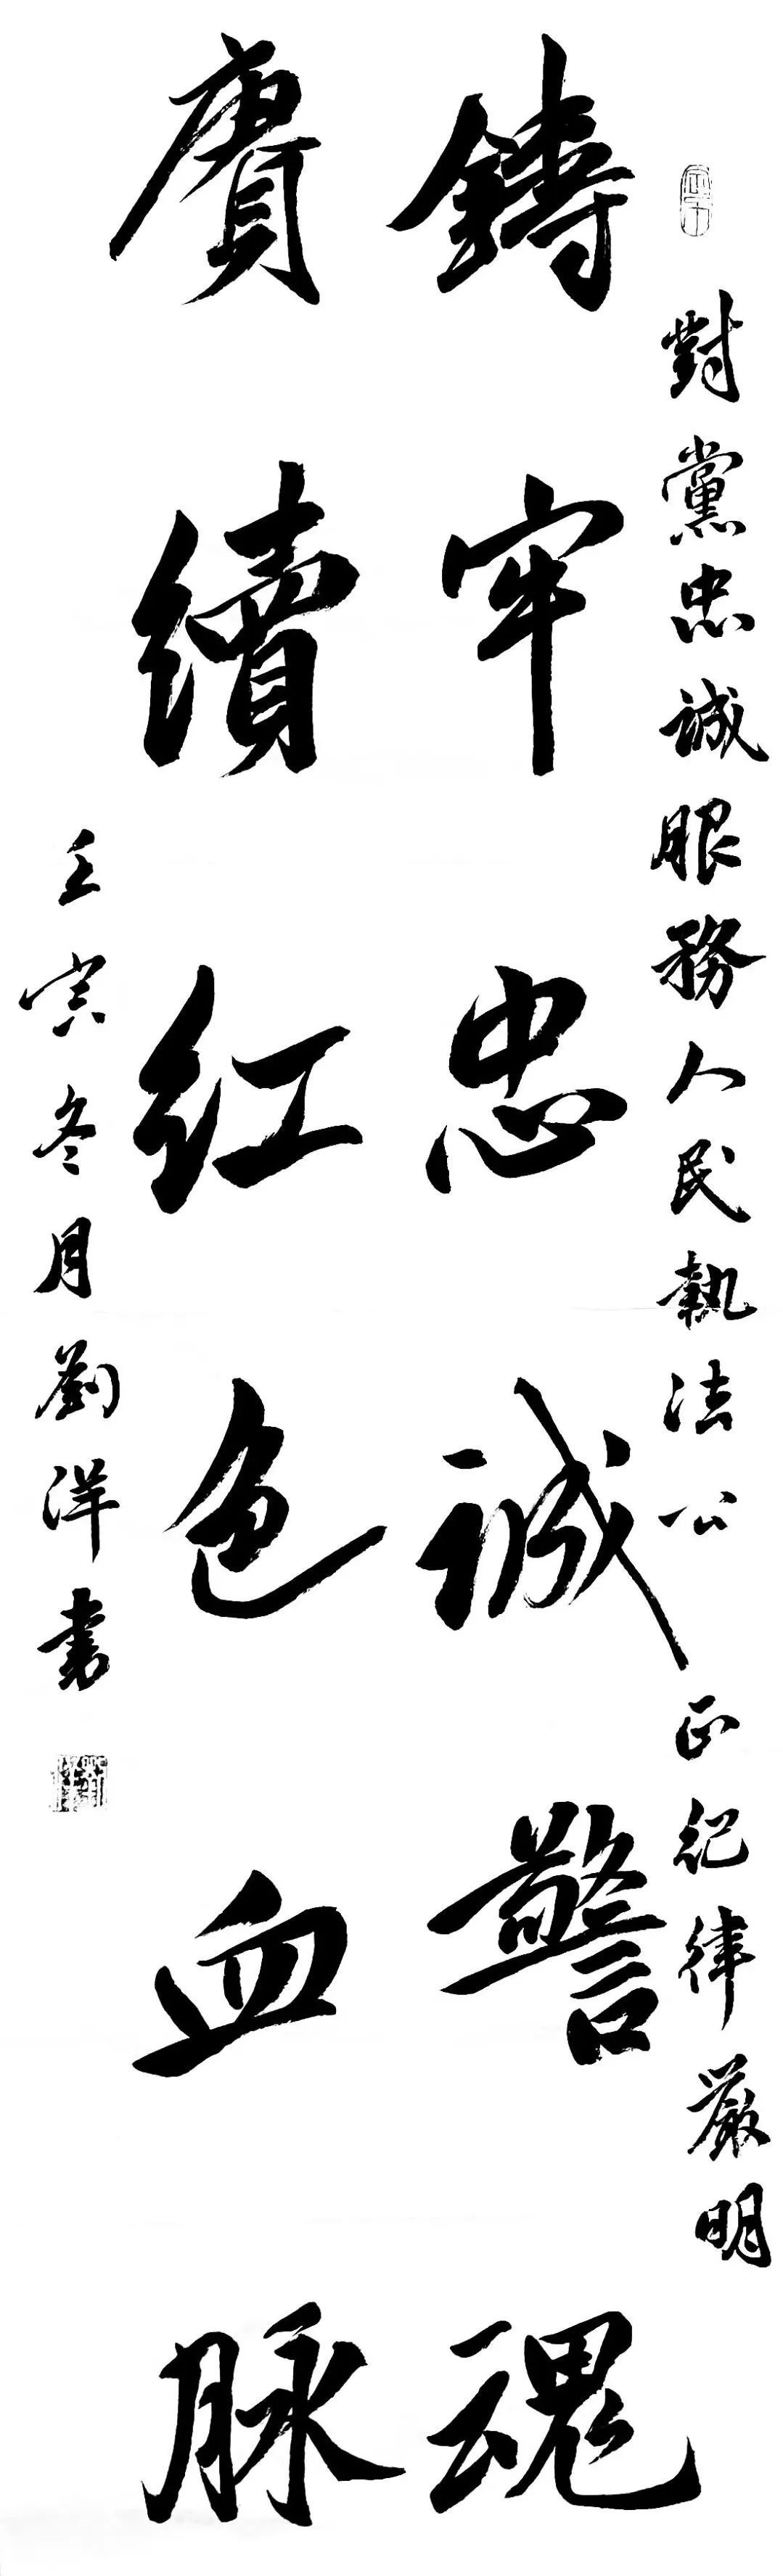 對黨忠誠服務人民執法公正紀律嚴明
鑄牢忠誠警魂
賡續红色血脉
壬寅冬月劉洋書